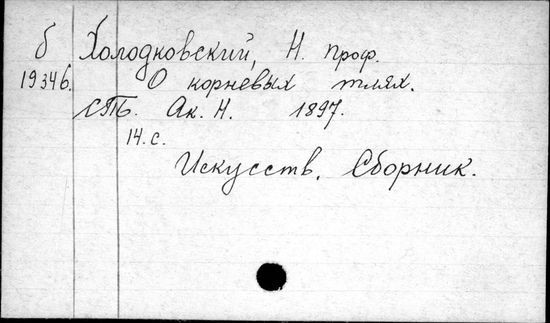 б Холодковский, Н. проф.
19346. О корневых тлях.
СПБ. Ак. Н. 1897.
14. с.
Искусств. Сборник.